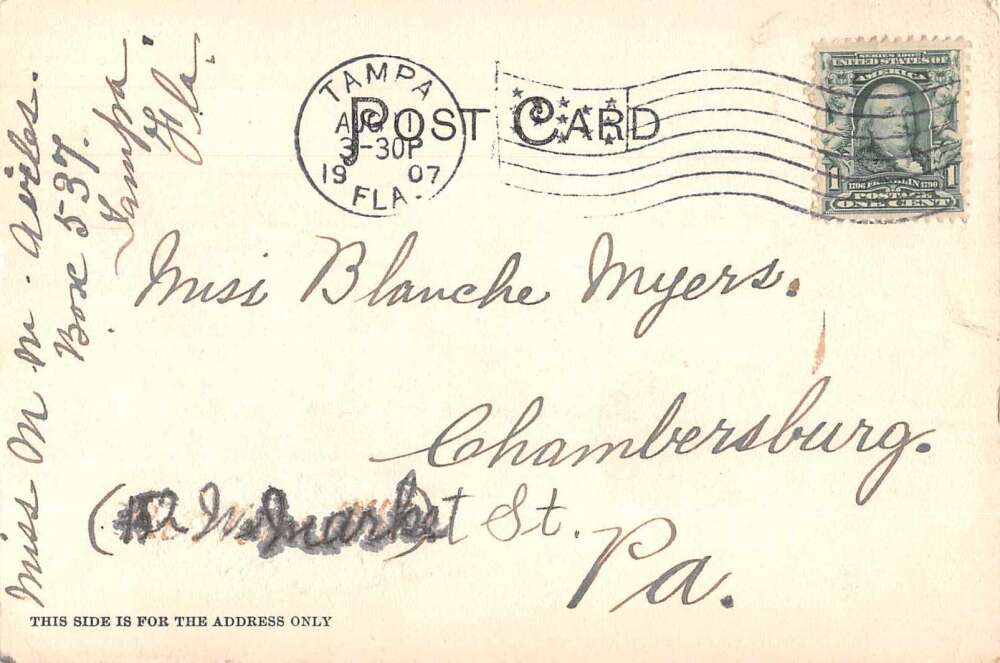 TAMPA
AUG 1
3-30P
19 07
FLA.
POST CARD
SERIES 1902
UNITED STATES OF
AMERICA
1 1706 FRANKLIN 1790 1
POSTAGE
ONE CENT
Miss Blanche Myers.
Chambersburg.
Market St.
Pa.
Miss M M Aviles.
Box 537.
Tampa
Fla.
THIS SIDE IS FOR THE ADDRESS ONLY